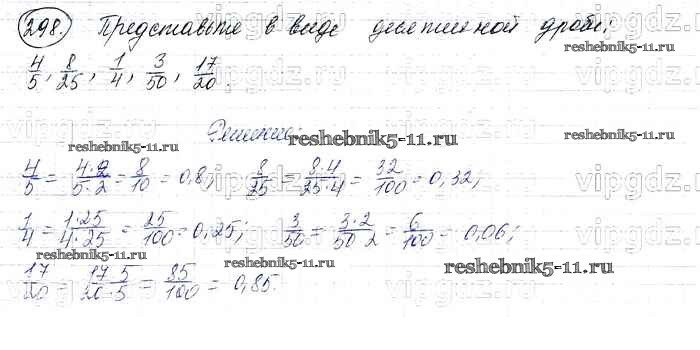 298. Представьте в виде десятичной дроби:
4/5, 8/25, 1/4, 3/50, 17/20.
Решение:
4/5 = 4·2/5·2 = 8/10 = 0,8; 8/25 = 8·4/25·4 = 32/100 = 0,32;
1/4 = 1·25/4·25 = 25/100 = 0,25; 3/50 = 3·2/50 2 = 6/100 = 0,06;
17/20 = 17 5/20·5 = 85/100 = 0,85.
reshebnik5-11.ru
reshebnik5-11.ru
reshebnik5-11.ru
reshebnik5-11.ru
reshebnik5-11.ru
reshebnik5-11.ru
reshebnik5-11.ru
vipgdz.ru
vipgdz.ru
vipgdz.ru
vipgdz.ru